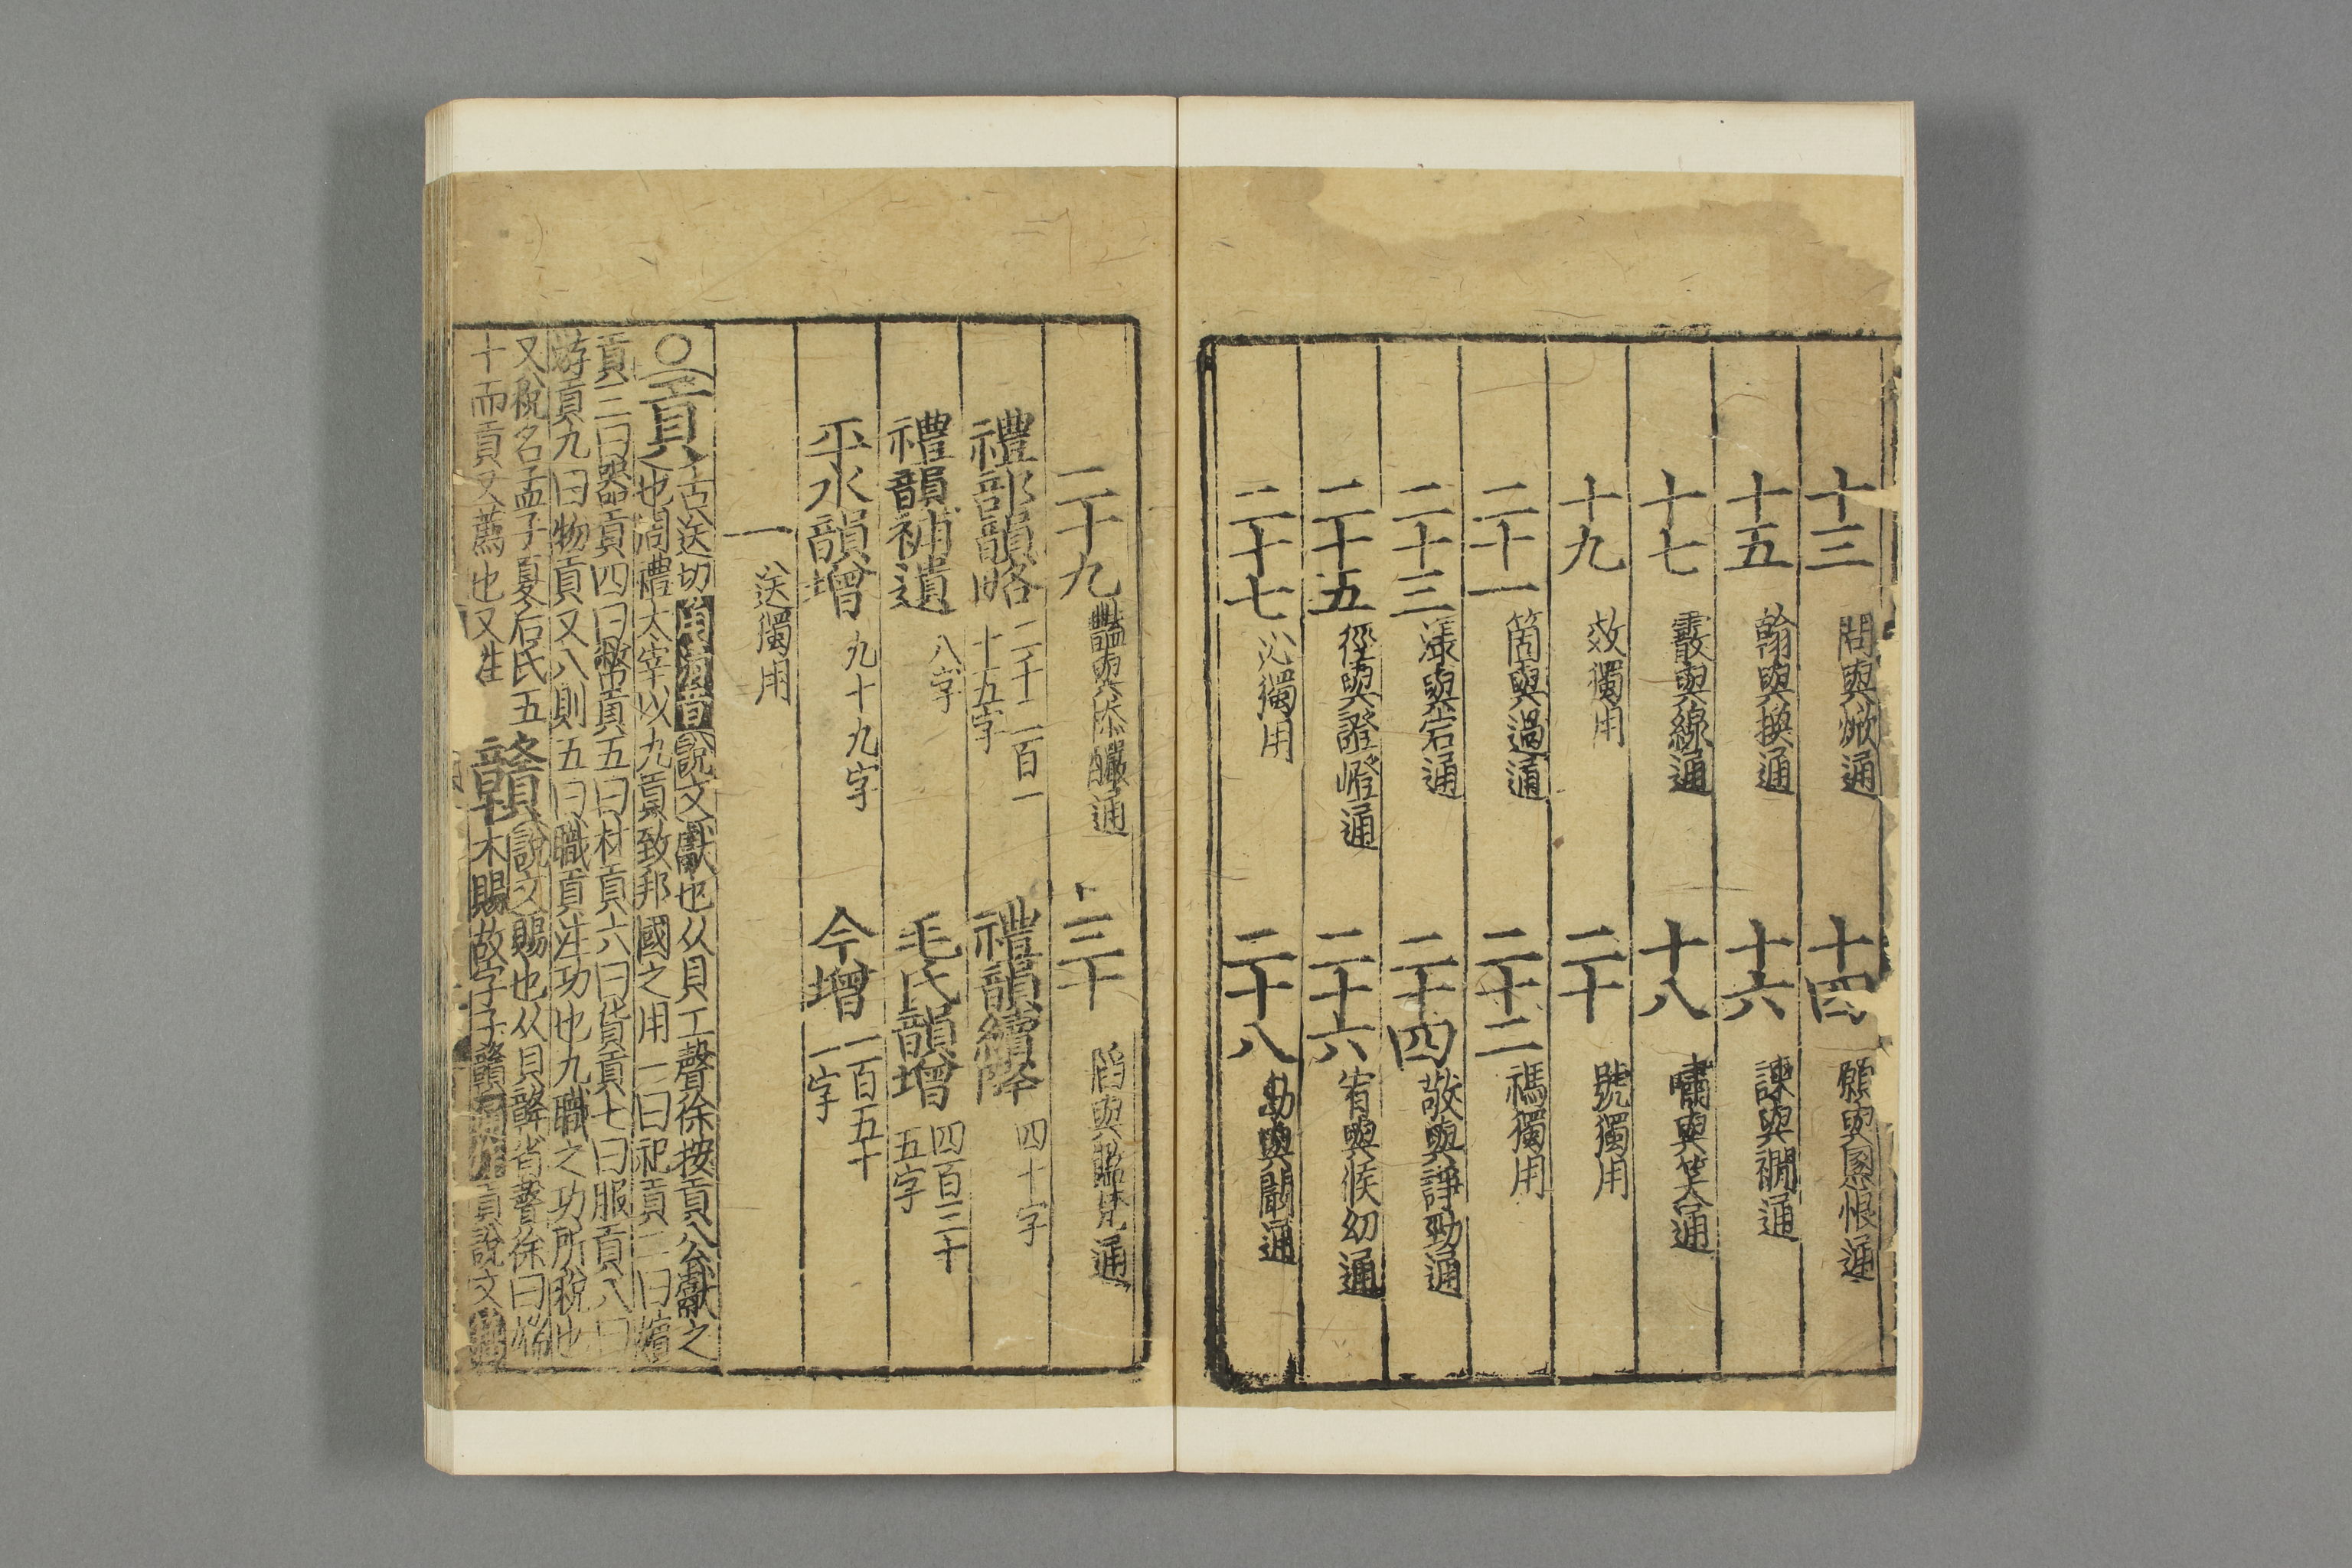 十三 問與焮通 十四 願與慁恨通
十五 翰與換通 十六 諫與襉通
十七 霰與線通 十八 嘯與笑通
十九 效獨用 二十 號獨用
二十一 箇與過通 二十二 禡獨用
二十三 漾與宕通 二十四 敬與諍勁通
二十五 徑與證嶝通 二十六 宥與候幼通
二十七 沁獨用 二十八 勘與闞通
二十九 豔與㮇釅通 三十 陷與鑑梵通
禮部韻略 二千二百一十五字 禮韻續降 四十字
禮韻補遺 八字 毛氏韻增 四百三十五字
平水韻增 九十九字 今增 一百五十一字
一 送獨用
○貢 古送切 說文獻也从貝工聲徐按貢八公獻之
也周禮太宰以九貢致邦國之用一曰祀貢二曰嬪
貢三曰器貢四曰幣貢五曰材貢六曰貨貢七曰服貢八曰
斿貢九曰物貢又八則五曰職貢注功也九職之功所稅也
又稅名孟子夏后氏五
十而貢又薦也又生
贛 說文賜也从貝竷省聲徐曰
木賜故字子贛 貢說文